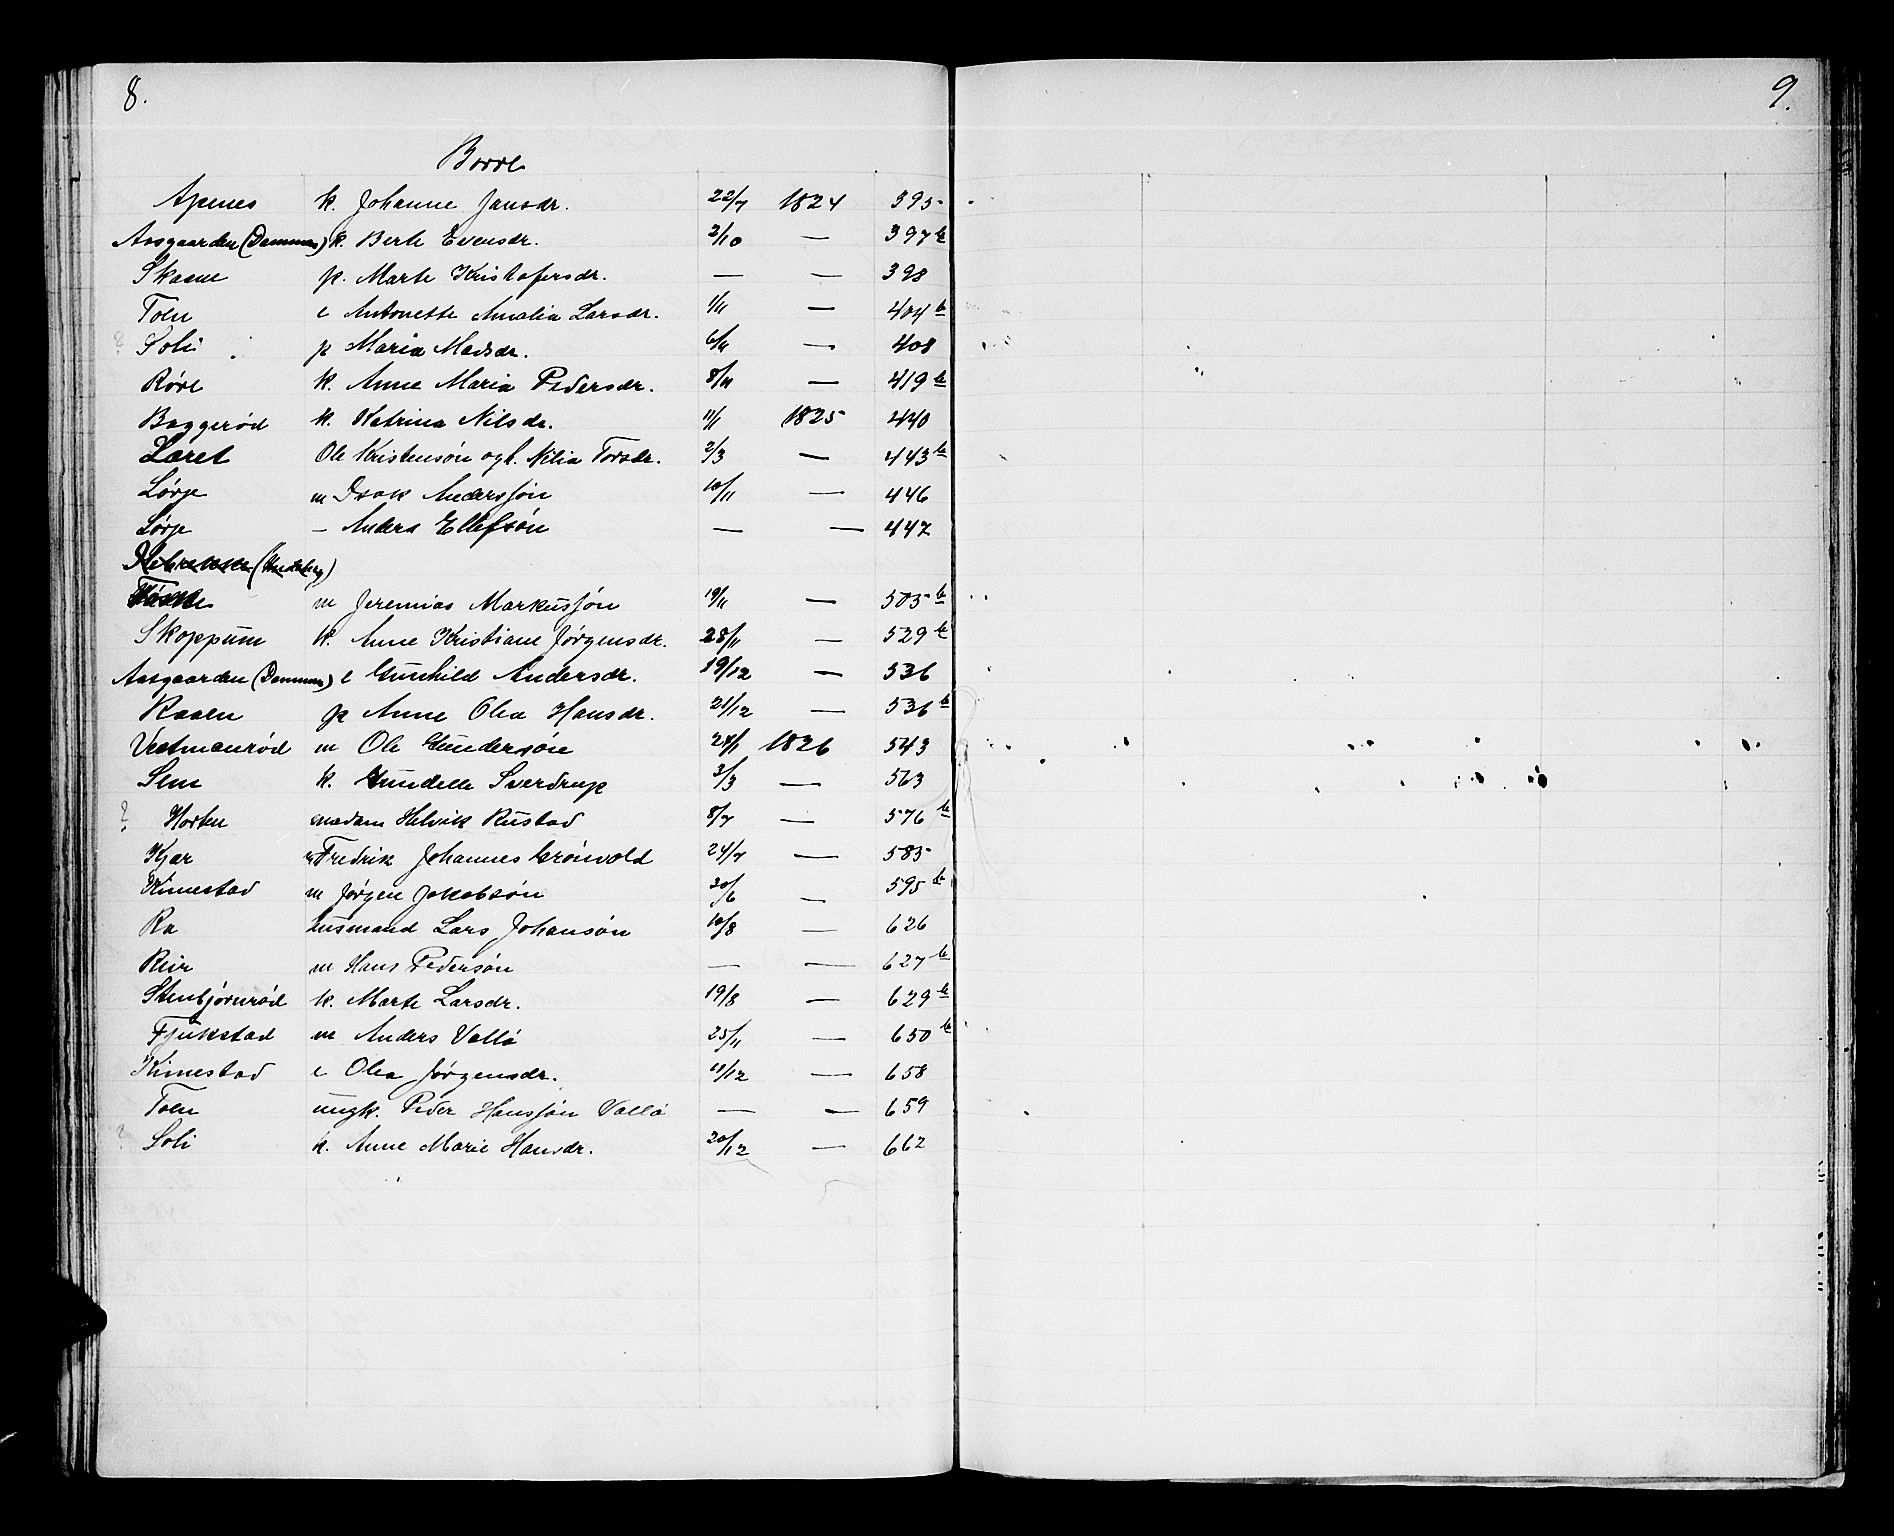 8.
9.
Borre
Apenes k. Johanne Jansdr. 22/7 1824 395
Aasgaarden (Dammen) k. Berte Evensdr. 2/10 — 397 b
Skaane p. Marte Kristofersdr. — — 398
Toen e Antonette Amalia Larsdr. 1/11 — 404 b
? Soli p Maria Madsdr. 6/11 — 408
Røre k. Anne Maria Pedersdr. 8/11 — 419 b
Baggerød k. Katrina Nilsdr. 11/1 1825 440
Læret Ole Kristensøn ogh. Nilia Torsdr. 2/3 — 443 b
Lørje m Isak Andersjøn 10/11 — 446
Lørje – Anders Ellefsøn — — 447
m Jeremias Markusjøn 19/11 — 505 b
Skoppum k. Anne Kristiane Jørgensdr. 28/11 — 529 b
Aasgaarden (Dammen) e Gunhild Andersdr. 19/12 — 536
Raaen p Anne Olea Hansdr. 21/12 — 536 b
Vestmanrød m Ole Gundersøn 24/1 1826 543
Sem k. Gundelle Sverdrup 3/3 — 563
? Horten madam Helvik Rustad 8/7 — 576 b
Kjær Fredrik Johannes Grönvold 24/7 — 585
Kimestad m Jørgen Jakobsøn 20/6 — 595 b
Ra husmand Lars Johansøn 10/8 — 626
Reir m Hans Pedersøn — — 627 b
Stenbjørnrød k. Marte Larsdr. 19/8 — 629 b
Fjukstad m Anders Vallö 25/11 — 650 b
Kimestad e Olea Jørgensdr. 11/12 — 658
Toen ungk. Peder Hansjøn Vallö — — 659
? Soli k. Anne Marie Hansdr. 20/12 — 662